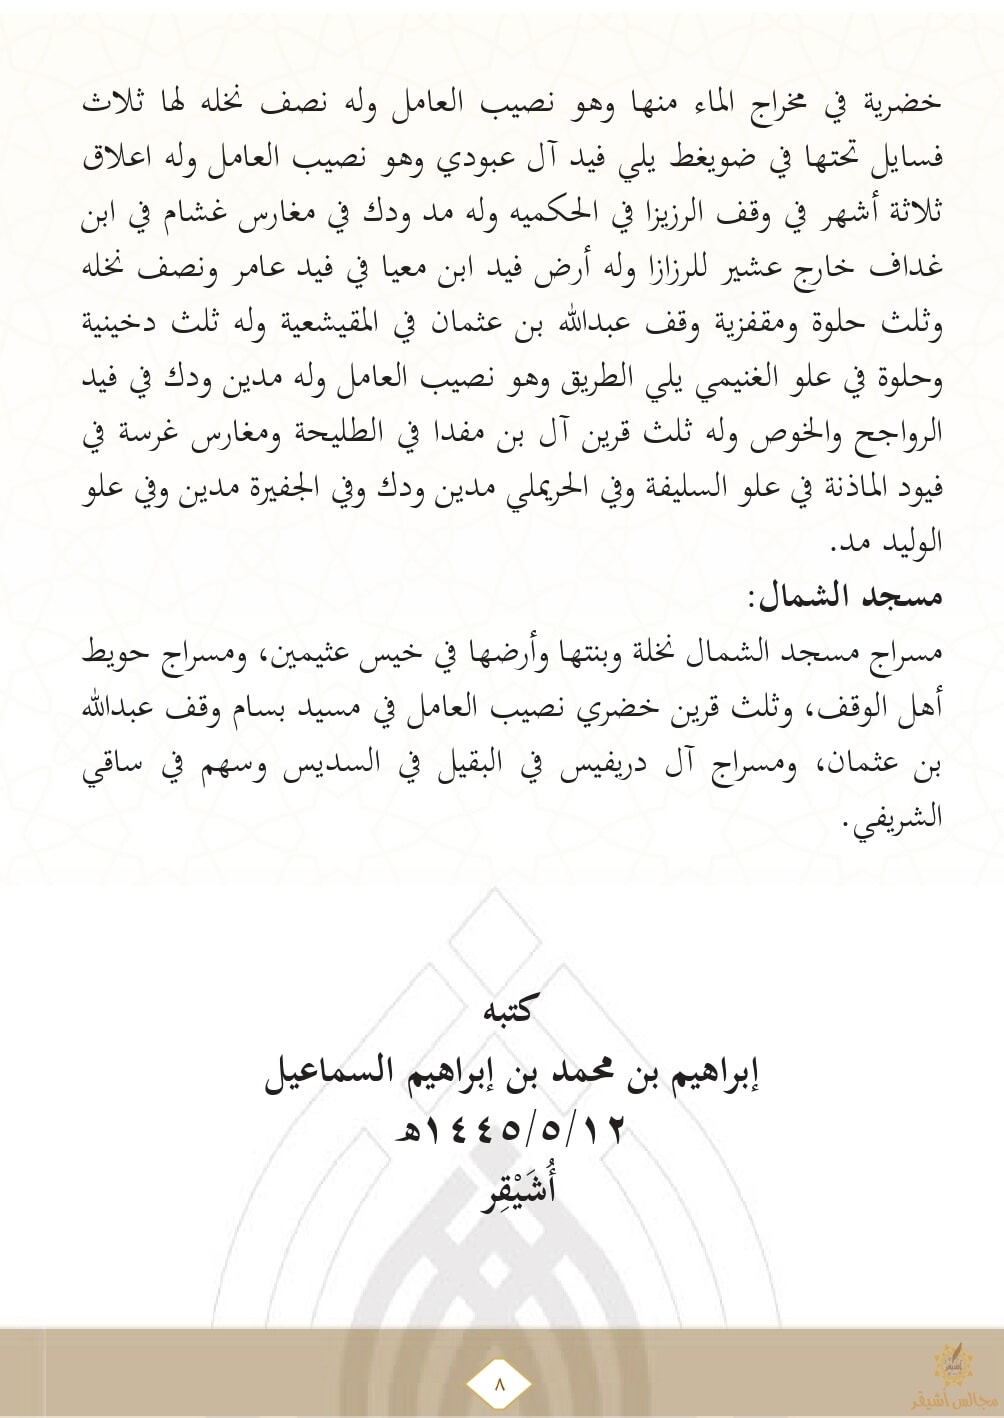 خضرية في مخراج الماء منها وهو نصيب العامل وله نصف نخله لها ثلاث
فسايل تحتها في ضويغط يلي فيد آل عبودي وهو نصيب العامل وله اعلاق
ثلاثة أشهر في وقف الرزيزا في الحكميه وله مد ودك في مغارس غشام في ابن
غداف خارج عشير للرزازا وله أرض فيد ابن معيا في فيد عامر ونصف نخله
وثلث حلوة ومقفزية وقف عبدالله بن عثمان في المقيشعية وله ثلث دخينية
وحلوة في علو الغنيمي يلي الطريق وهو نصيب العامل وله مدين ودك في فيد
الرواجح والخوص وله ثلث قرين آل بن مفدا في الطليحة ومغارس غرسة في
فيود الماذنة في علو السليفة وفي الحريملي مدين ودك وفي الجفيرة مدين وفي علو
الوليد مد.
مسجد الشمال:
مسراج مسجد الشمال نخلة وبنتها وأرضها في خيس عثيمين، ومسراج حويط
أهل الوقف، وثلث قرين خضري نصيب العامل في مسيد بسام وقف عبدالله
بن عثمان، ومسراج آل دريفيس في البقيل في السديس وسهم في ساقي
الشريفي.
كتبه
إبراهيم بن محمد بن إبراهيم السماعيل
١٤٤٥/٥/١٢هـ
أُشَيْقِر
٨
مجالس أشيقر